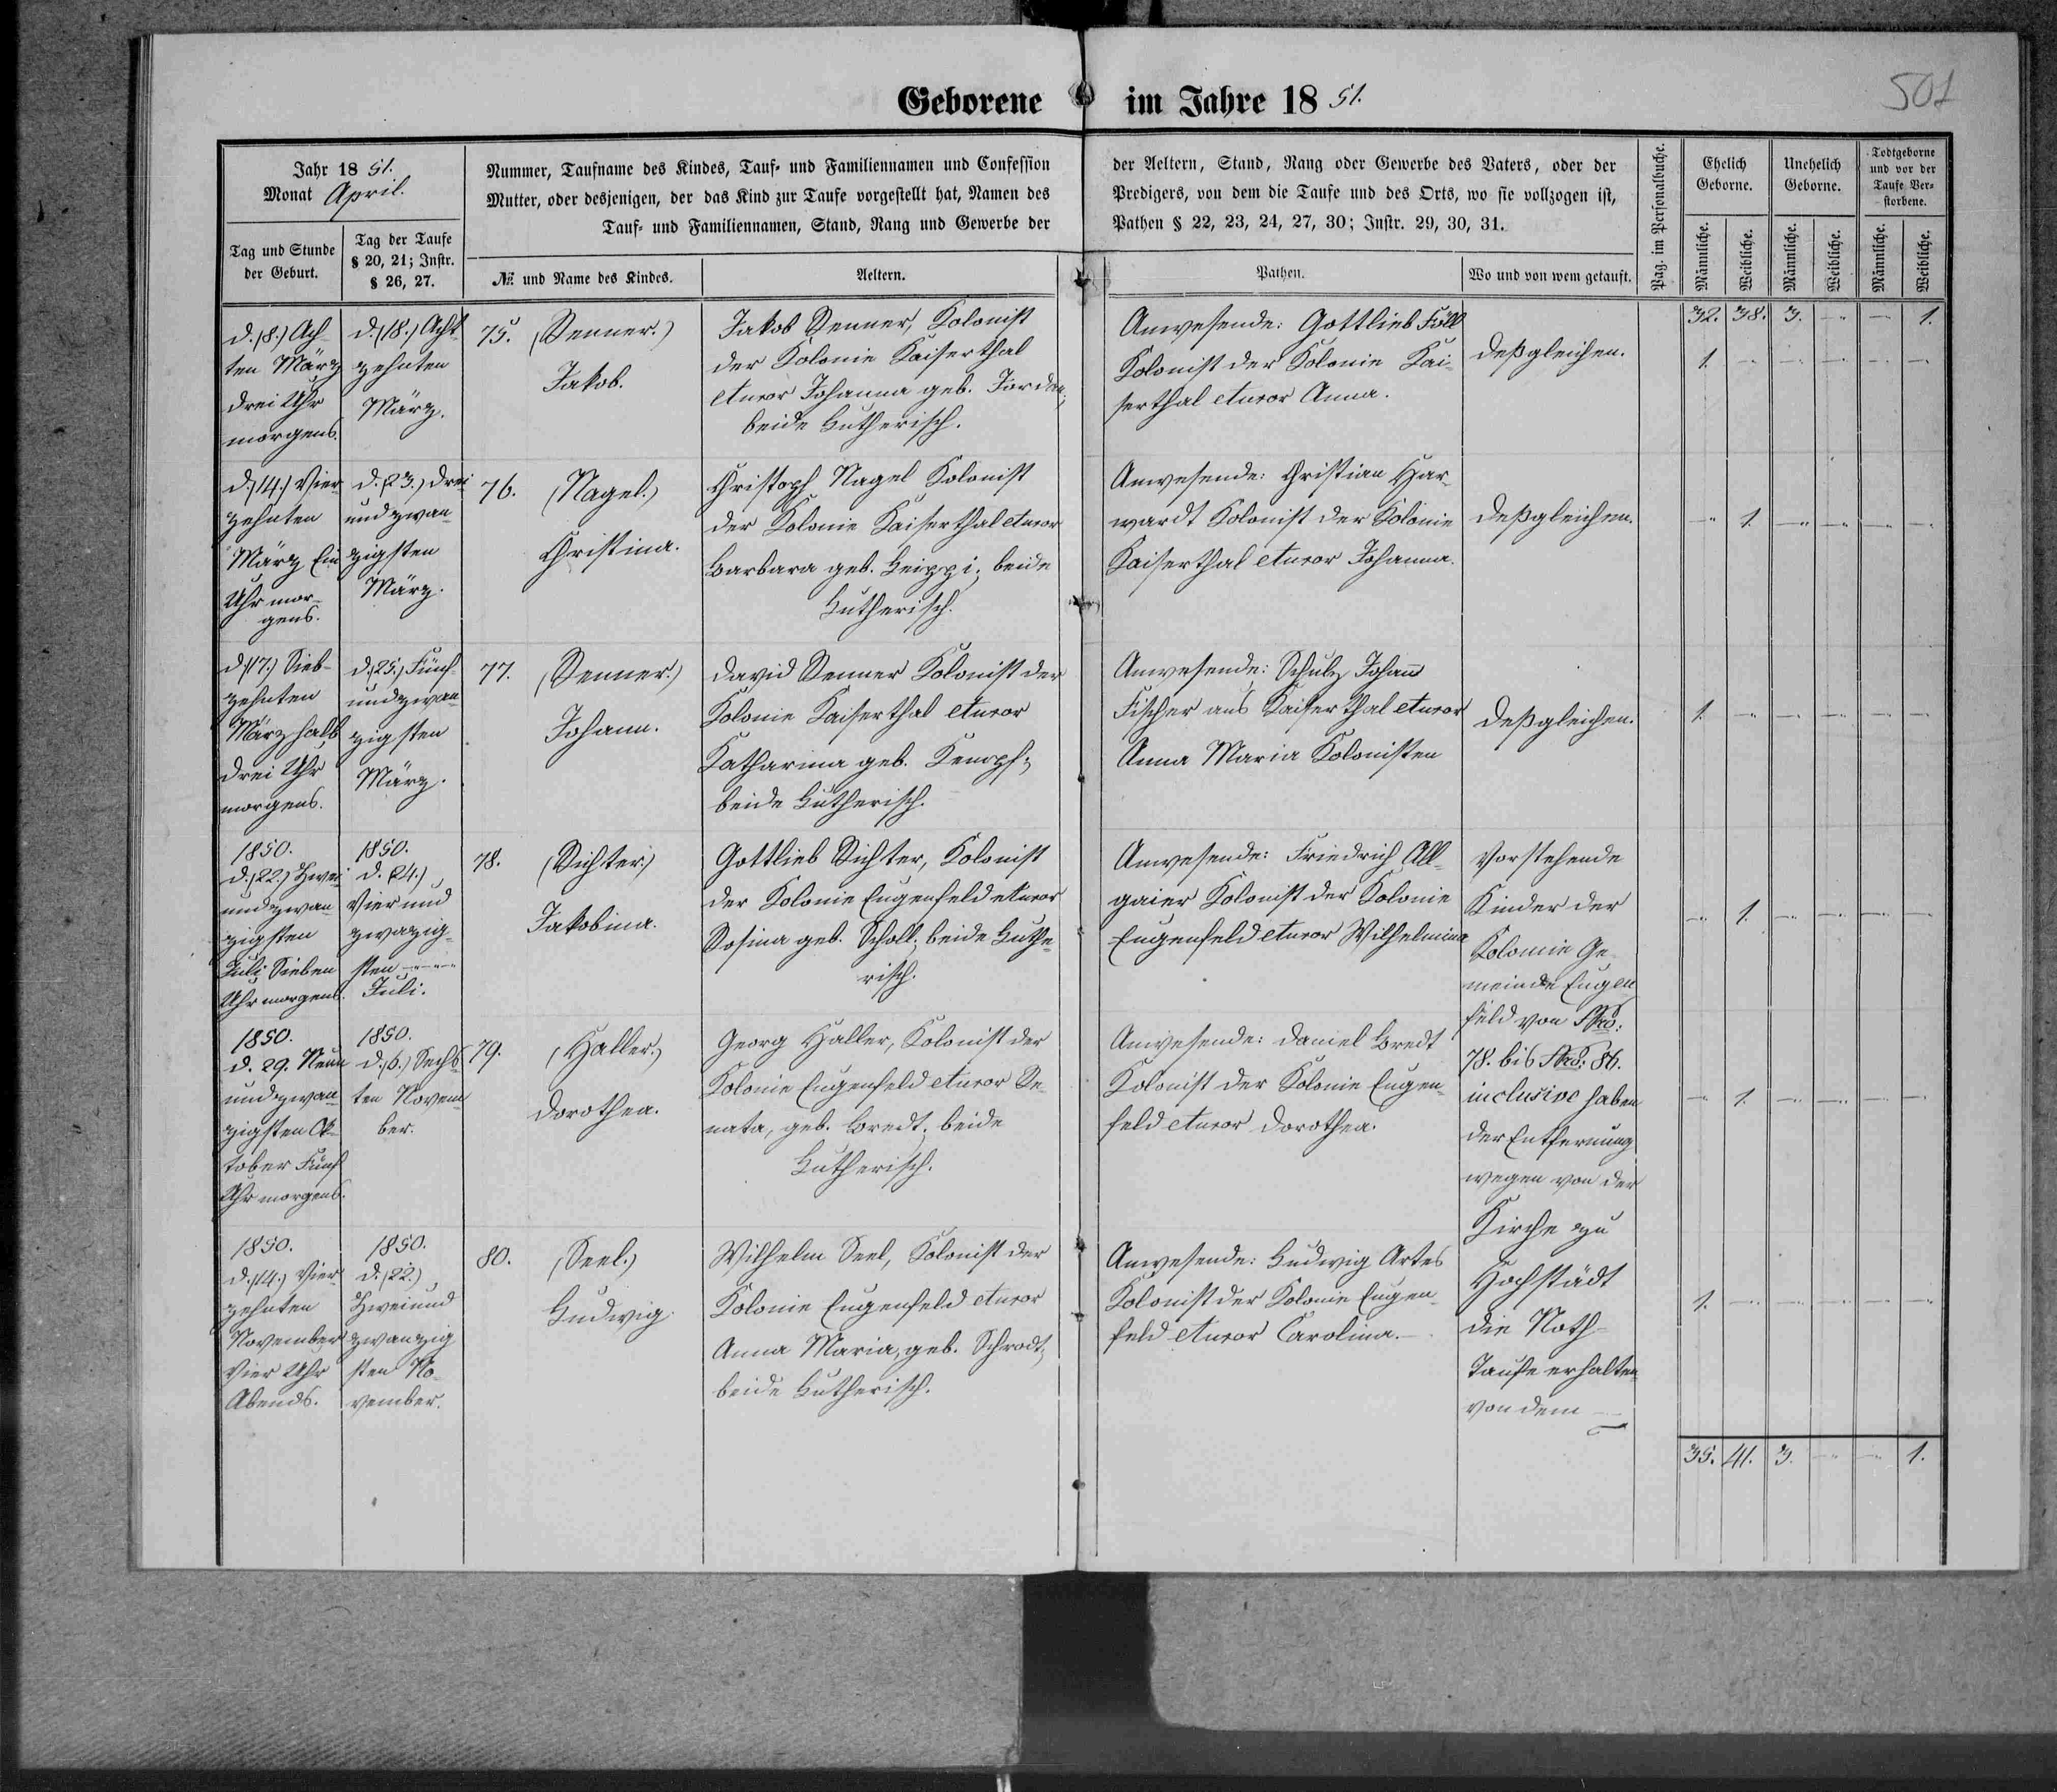 501
Geborene im Jahre 1851.
Jahr 1851.
Monat April.
Tag und Stunde
der Geburt.
Tag der Taufe
§ 20, 21; Instr.
§ 26, 27.
Nummer, Taufname des Kindes, Tauf- und Familiennamen und Confession
Mutter, oder desjenigen, der das Kind zur Taufe vorgestellt hat, Namen des
Tauf- und Familiennamen, Stand, Rang und Gewerbe der
№ und Name des Kindes.
Aeltern.
der Aeltern, Stand, Rang oder Gewerbe des Vaters, oder der
Predigers, von dem die Taufe und des Orts, wo sie vollzogen ist,
Pathen § 22, 23, 24, 27, 30; Instr. 29, 30, 31.
Pathen.
Wo und von wem getauft.
Pag. im Personalbuche.
Ehelich
Geborne.
Unehelich
Geborne.
Todtgeborne
und vor der
Taufe Ver-
storbene.
Männliche.
Weibliche.
Männliche.
Weibliche.
Männliche.
Weibliche.
32. 38. 3. -"- -"- 1.
d. (8.) Ach-
ten März
drei Uhr
morgens.
d. (18.) Acht
zehnten
März.
75. (Renner.)
Jakob.
Jakob Renner, Kolonist
der Kolonie Kaiserthal
et uxor Johanna geb. Jordan;
beide Lutherisch.
Anwesende: Gottlieb Föll
Kolonist der Kolonie Kai-
serthal et uxor Anna.
deßgleichen.
1. -"- -"- -"- -"- -"-
d. (14.) Vier-
zehnten
März Ein
Uhr mor-
gens.
d. (23.) drei
und zwan-
zigsten
März.
76. (Nagel.)
Christina.
Christoph Nagel Kolonist
der Kolonie Kaiserthal et uxor
Barbara geb. Leippi; beide
Lutherisch.
Anwesende: Christian Har-
wardt Kolonist der Kolonie
Kaiserthal et uxor Johanna.
deßgleichen.
-"- 1. -"- -"- -"- -"-
d. (17.) Sieb-
zehnten
März halb
drei Uhr
morgens.
d. (25.) Fünf-
und zwan-
zigsten
März.
77. (Renner.)
Johann.
David Renner Kolonist der
Kolonie Kaiserthal et uxor
Katharina geb. Kempf;
beide Lutherisch.
Anwesende: Schulz Johann
Fischer aus Kaiserthal et uxor
Anna Maria Kolonisten
deßgleichen.
1. -"- -"- -"- -"- -"-
1850.
d. (22.) Zwei
und zwan-
zigsten
Juli Sieben
Uhr morgens.
1850.
d. (24.)
Vier und
zwazig-
sten -"-"-
Juli.
78. (Richter.)
Jakobina.
Gottlieb Richter, Kolonist
der Kolonie Eugenfeld et uxor
Rosina geb. Scholl; beide Luthe-
risch.
Anwesende: Friedrich All-
gaier Kolonist der Kolonie
Eugenfeld et uxor Wilhelmina
Vorstehende
Kinder der
Kolonie Ge-
meinde Eugen
feld von Nro:
78. bis Nro: 86.
inclusive haben
der Entfernung
wegen von der
Kirche zu
Hochstädt
die Noth-
Taufe erhalten
von dem
-"- 1. -"- -"- -"- -"-
1850.
d. 29. Neun
und zwan-
zigsten Ok-
tober Fünf
Uhr morgens.
1850.
d. (6.) Sechs-
ten Novem
ber.
79. (Haller.)
Dorothea.
Georg Haller, Kolonist der
Kolonie Eugenfeld et uxor Re-
nata, geb. Bredt; beide
Lutherisch.
Anwesende: Daniel Bredt
Kolonist der Kolonie Eugen-
feld et uxor Dorothea.
-"- 1. -"- -"- -"- -"-
1850.
d. (14.) Vier
zehnten
November
Vier Uhr
Abends.
1850.
d. (22.)
Zwei und
zwanzig
sten No-
vember.
80. (Seel.)
Ludwig
Wilhelm Seel, Kolonist der
Kolonie Eugenfeld et uxor
Anna Maria, geb. Schrodt;
beide Lutherisch.
Anwesende: Ludwig Artes
Kolonist der Kolonie Eugen-
feld et uxor Carolina.
1. -"- -"- -"- -"- -"-
35. 41. 3. -"- -"- 1.